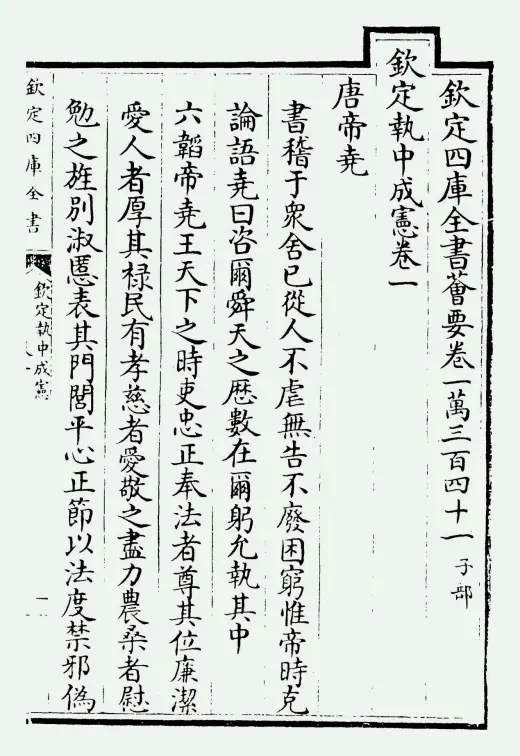 欽定四庫全書薈要卷一萬三百四十一 子部
欽定執中成憲卷一
唐帝堯
書稽于衆舍已從人不虐無告不廢困窮惟帝時克
論語堯曰咨爾舜天之厯數在爾躬允執其中
六韜帝堯王天下之時吏忠正奉法者尊其位廉潔
愛人者厚其祿民有孝慈者愛敬之盡力農桑者慰
勉之旌別淑慝表其門閭平心正節以法度禁邪偽
欽定四庫全書
欽定執中成憲
一